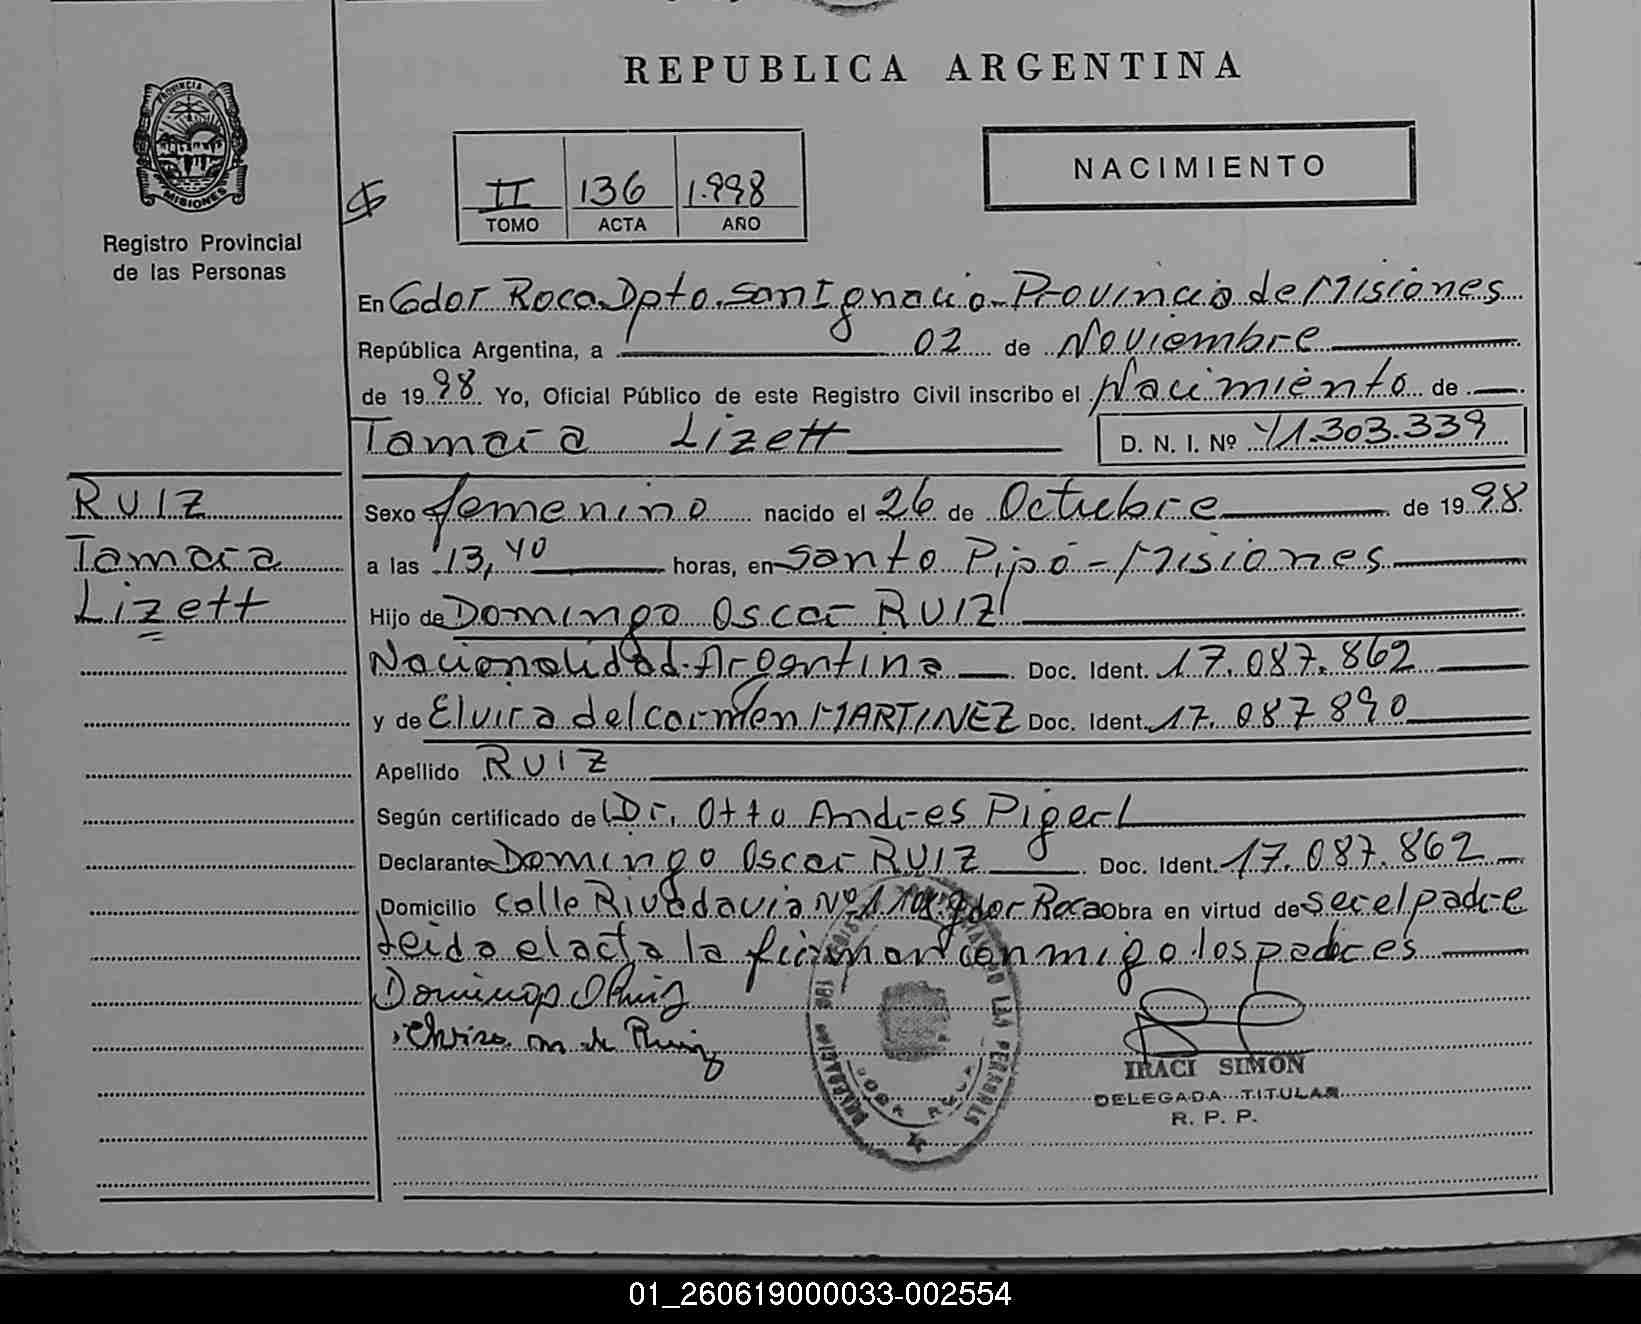 REPUBLICA ARGENTINA
PROVINCIA DE
MISIONES
Registro Provincial
de las Personas
II 136 1.998
TOMO ACTA AÑO
NACIMIENTO
En Gdor Roca Dpto. San Ignacio Provincia de Misiones
República Argentina, a 02 de Noviembre
de 1998 Yo, Oficial Público de este Registro Civil inscribo el Nacimiento de
Tamara Lizett D. N. I. Nº 41.303.339
RUIZ
Tamara
Lizett
Sexo femenino nacido el 26 de Octubre de 1998
a las 13,40 horas, en Santo Pipó - Misiones
Hijo de Domingo Oscar RUIZ
Nacionalidad Argentina Doc. Ident. 17.087.862
y de Elvira del carmen MARTINEZ Doc. Ident. 17.087890
Apellido RUIZ
Según certificado de Dr. Otto Andres Pigerl
Declarante Domingo Oscar RUIZ Doc. Ident. 17.087.862
Domicilio calle Rivadavia Nº Gdor Roca Obra en virtud de ser el padre
leida el acta la firman conmigo los padres
Domingo O Ruiz
Elvira m de Ruiz
LAS PERSONAS
GDOR ROCA
IRACI SIMON
DELEGADA TITULAR
R. P. P.
01_260619000033-002554